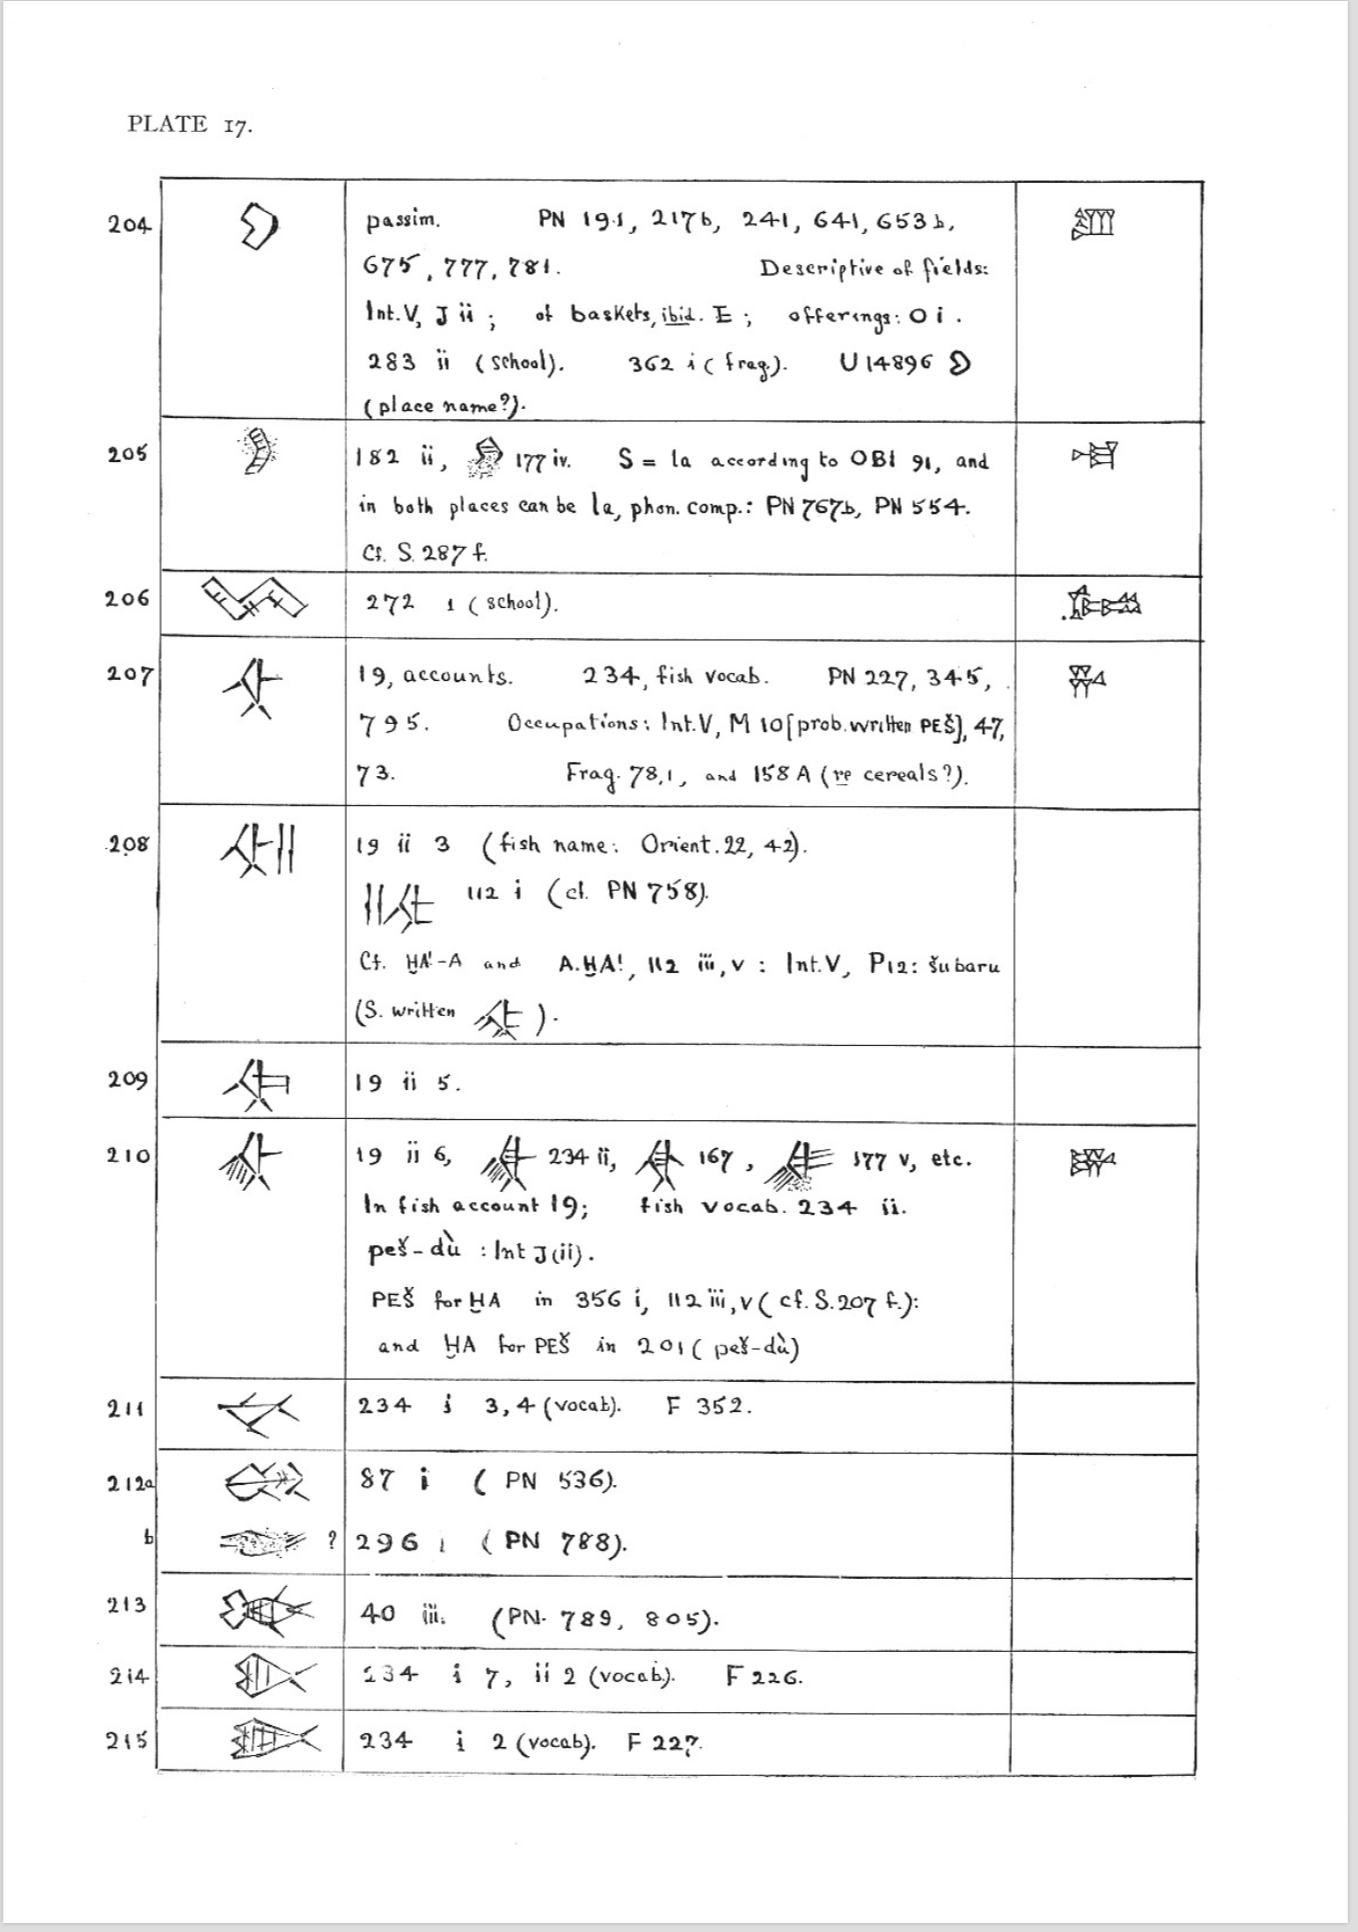 PLATE 17.
204 passim. PN 191, 217b, 241, 641, 653b,
675, 777, 781. Descriptive of fields:
Int.V, J ii; of baskets, ibid. E; offerings: O i.
283 ii (school). 362 i (frag.). U 14896
(place name?).
205 182 ii, 177 iv. S = la according to OBI 91, and
in both places can be la, phon. comp.: PN 767b, PN 554.
Cf. S. 287 f.
206 272 i (school).
207 19, accounts. 234, fish vocab. PN 227, 345,
795. Occupations: Int.V, M 10 [prob. written PEŠ], 47,
73. Frag. 78,1, and 158 A (re cereals?).
208 19 ii 3 (fish name: Orient. 22, 42).
112 i (cf. PN 758).
Cf. ḪA!-A and A.ḪA!, 112 iii, v: Int.V, P12: šubaru
(S. written ).
209 19 ii 5.
210 19 ii 6, 234 ii, 167, 177 v, etc.
In fish account 19; fish vocab. 234 ii.
peš-dù: Int J(ii).
PEŠ for ḪA in 356 i, 112 iii, v (cf. S. 207 f.):
and ḪA for PEŠ in 201 (peš-dù)
211 234 i 3, 4 (vocab). F 352.
212a 87 i (PN 536).
b ? 296 i (PN 788).
213 40 iii. (PN. 789, 805).
214 234 i 7, ii 2 (vocab). F 226.
215 234 i 2 (vocab). F 227.